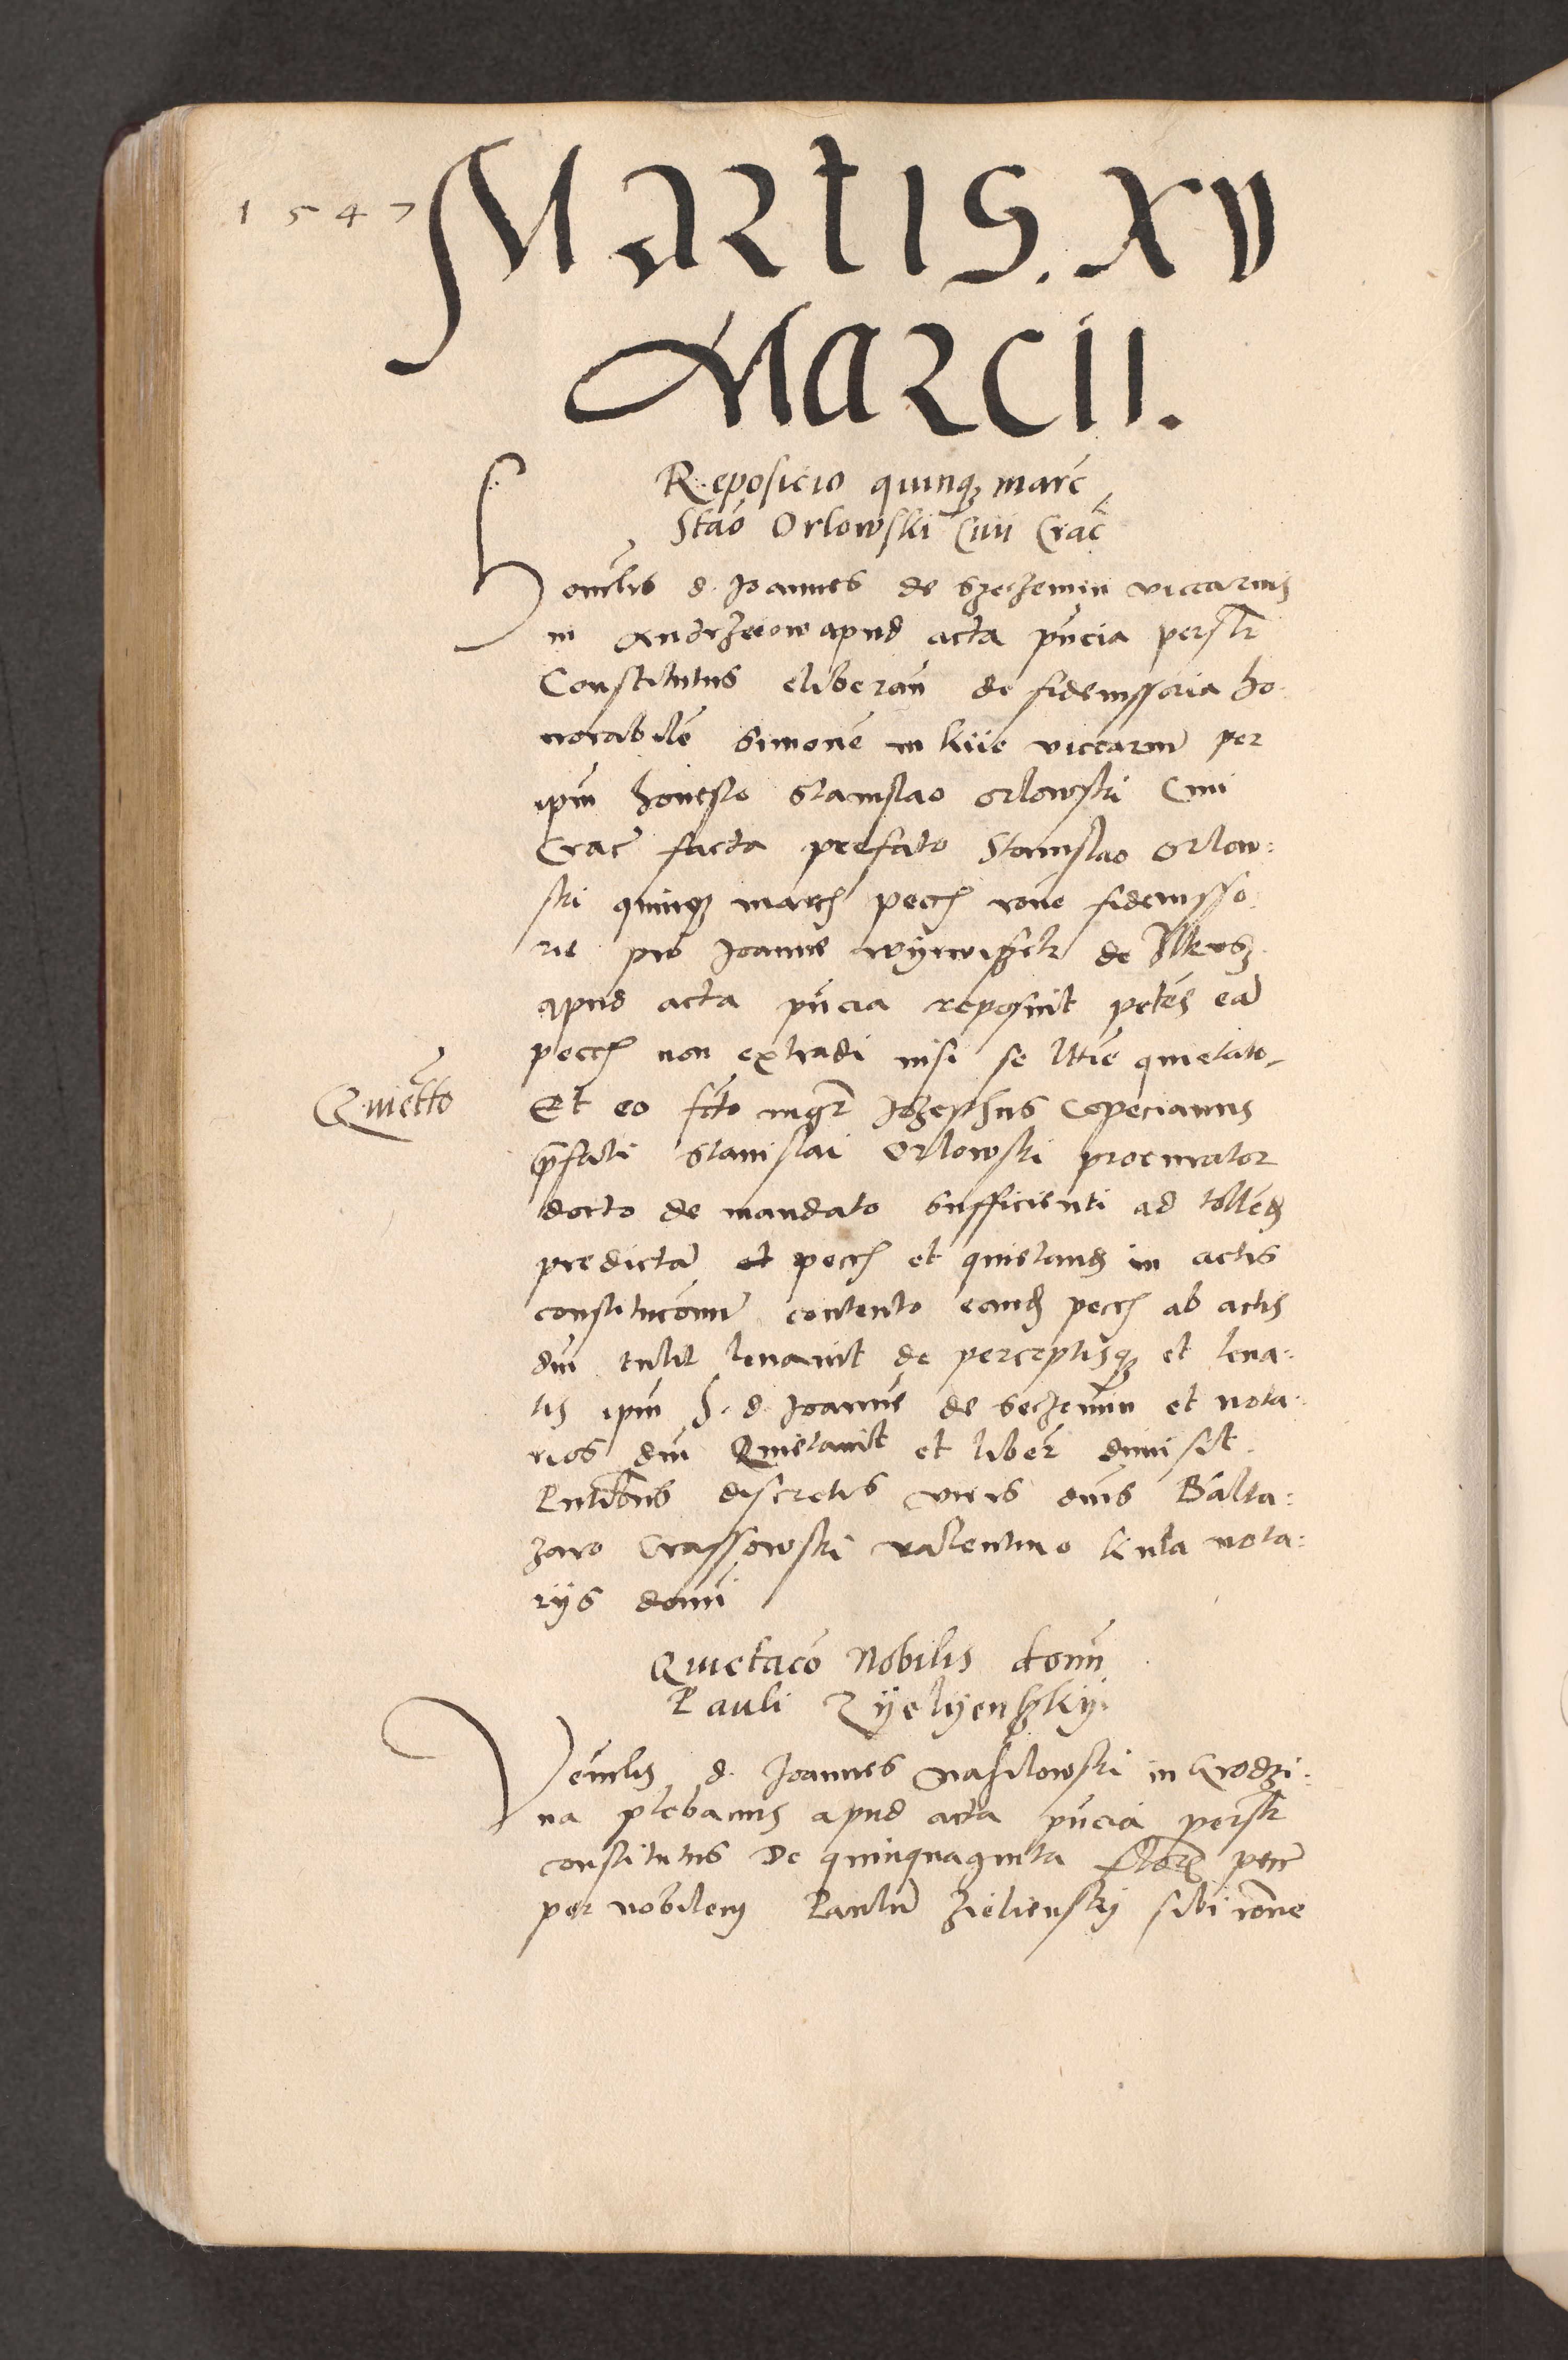 1547
Martis. XV
Marcii.
Reposicio quinq3 marc
Stao Orlowski Civi Crac
Honorlis d. Joannes de Szeczemin viccarius
in Andrzeiow apud acta pncia persr
Constitutus eliberan de fideiussoria ho-
norabile Simone in Kiie viccariu per
ipm honesto Stanislao Orlowski Civi
Crac facta prefato Stanislao Orlow:
ski quinq3 march pecch rone fideiusso
rie pro Joanne de
apud acta pncia reposuit petes ea
pecch non extradi nisi se lttie quietato
Quietto
Et eo fcto mgr Jozephus Copecianus
prefati Stanislai Orlowski procurator
docto de mandato sufficienti ad tollend
predicta et pecch et quietand in actis
constitucionu contento eand pecch ab actis
dni tulit levavit de perceptisq3 et leva:
tis ipm h. d. Joanne de Seczemin et nota:
rios dni Quietavit et liber dimisit
Pntibus discretis viris dnis Balta:
zaro Crassowski Valentino Kula nota:
riis domi
Quietaco Nobilis domi
Pauli Zyelyenskij
Venlis d. Joannes Nasilowski in Grodzi:
na plebanus apud acta pncia persr
constitutus De quinquaginta floren pecc
per nobilem Paulu Zielienskij sibi rone